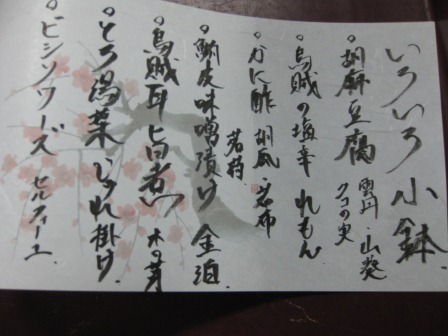 いろいろ小鉢
胡麻豆腐 雲丹・山葵
クコの実
烏賊の塩辛 れもん
かに酢 胡瓜・若布
若狩
鯛皮味噌漬け 金泊
烏賊耳旨煮 木の芽
とろ湯葉 じゅれ掛け
ビシソワーズ セルフィーユ